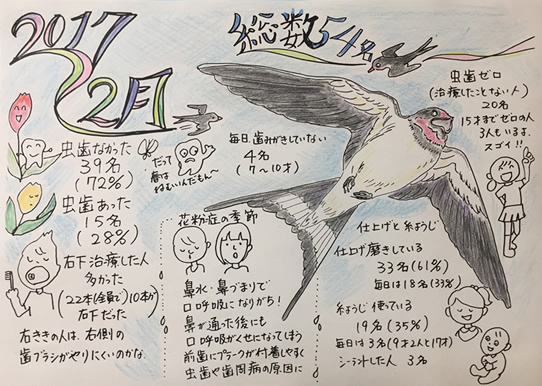 2017
2月
総数54名
虫歯なかった
39名
(72%)
虫歯あった
15名
(28%)
右下治療した人
多かった
(22本(全員で)10本が
右下だった
右ききの人は、右側の
歯ブラシがやりにくいのかな。
毎日、歯みがきしていない
4名
(7~10才)
だって
春は
ねむいんだもん~
花粉症の季節
鼻水・鼻づまりで
口呼吸になりがち!
鼻が通った後にも
口呼吸がくせになってしまう
前歯にプラークが付着しやすく
虫歯や歯周病の原因に
虫歯ゼロ
(治療したことない人)
20名
15才までゼロの人
3人もいるよ。
スゴイ!!
仕上げと糸ようじ
仕上げ磨きしている
33名(61%)
毎日は18名(33%)
糸ようじ使っている
19名(35%)
毎日は3名(9才2人と17才)
シーラントした人 3名